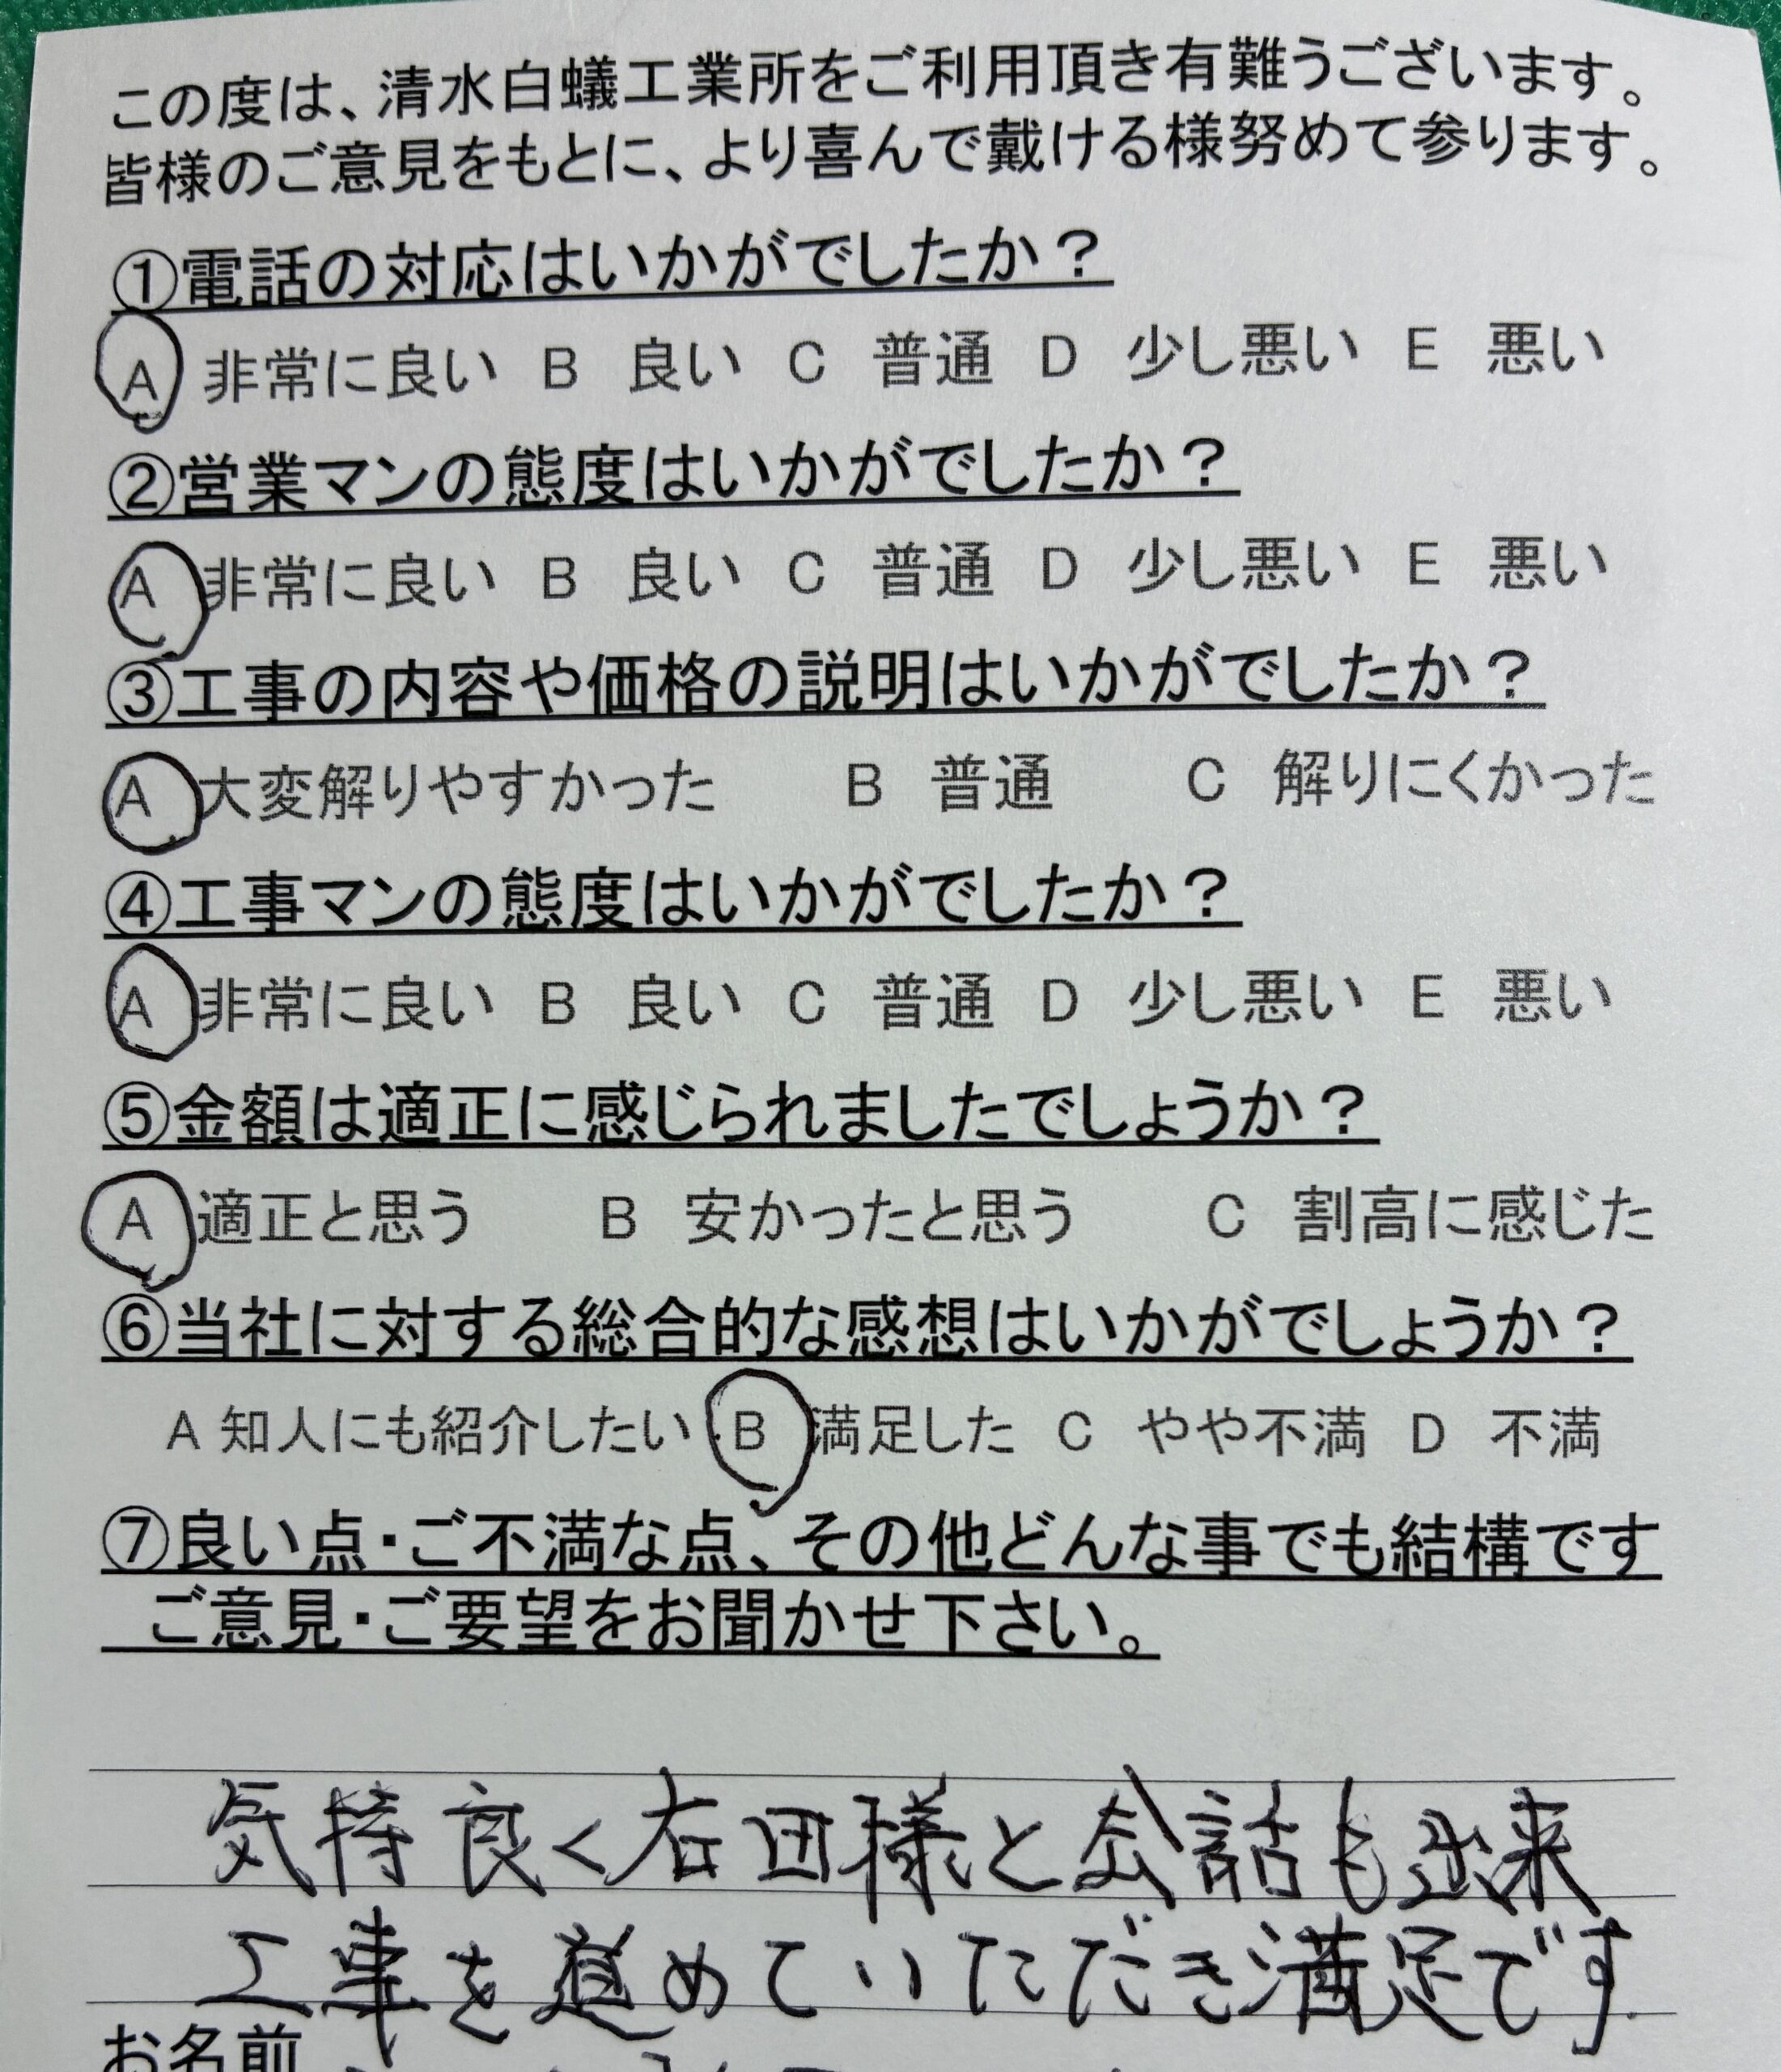 この度は、清水白蟻工業所をご利用頂き有難うございます。
皆様のご意見をもとに、より喜んで戴ける様努めて参ります。
①電話の対応はいかがでしたか？
A 非常に良い B 良い C 普通 D 少し悪い E 悪い
②営業マンの態度はいかがでしたか？
A 非常に良い B 良い C 普通 D 少し悪い E 悪い
③工事の内容や価格の説明はいかがでしたか？
A 大変解りやすかった B 普通 C 解りにくかった
④工事マンの態度はいかがでしたか？
A 非常に良い B 良い C 普通 D 少し悪い E 悪い
⑤金額は適正に感じられましたでしょうか？
A 適正と思う B 安かったと思う C 割高に感じた
⑥当社に対する総合的な感想はいかがでしょうか？
A 知人にも紹介したい B 満足した C やや不満 D 不満
⑦良い点・ご不満な点、その他どんな事でも結構です
ご意見・ご要望をお聞かせ下さい。
気持良く右田様と会話も出来
工事を進めていただき満足です
お名前